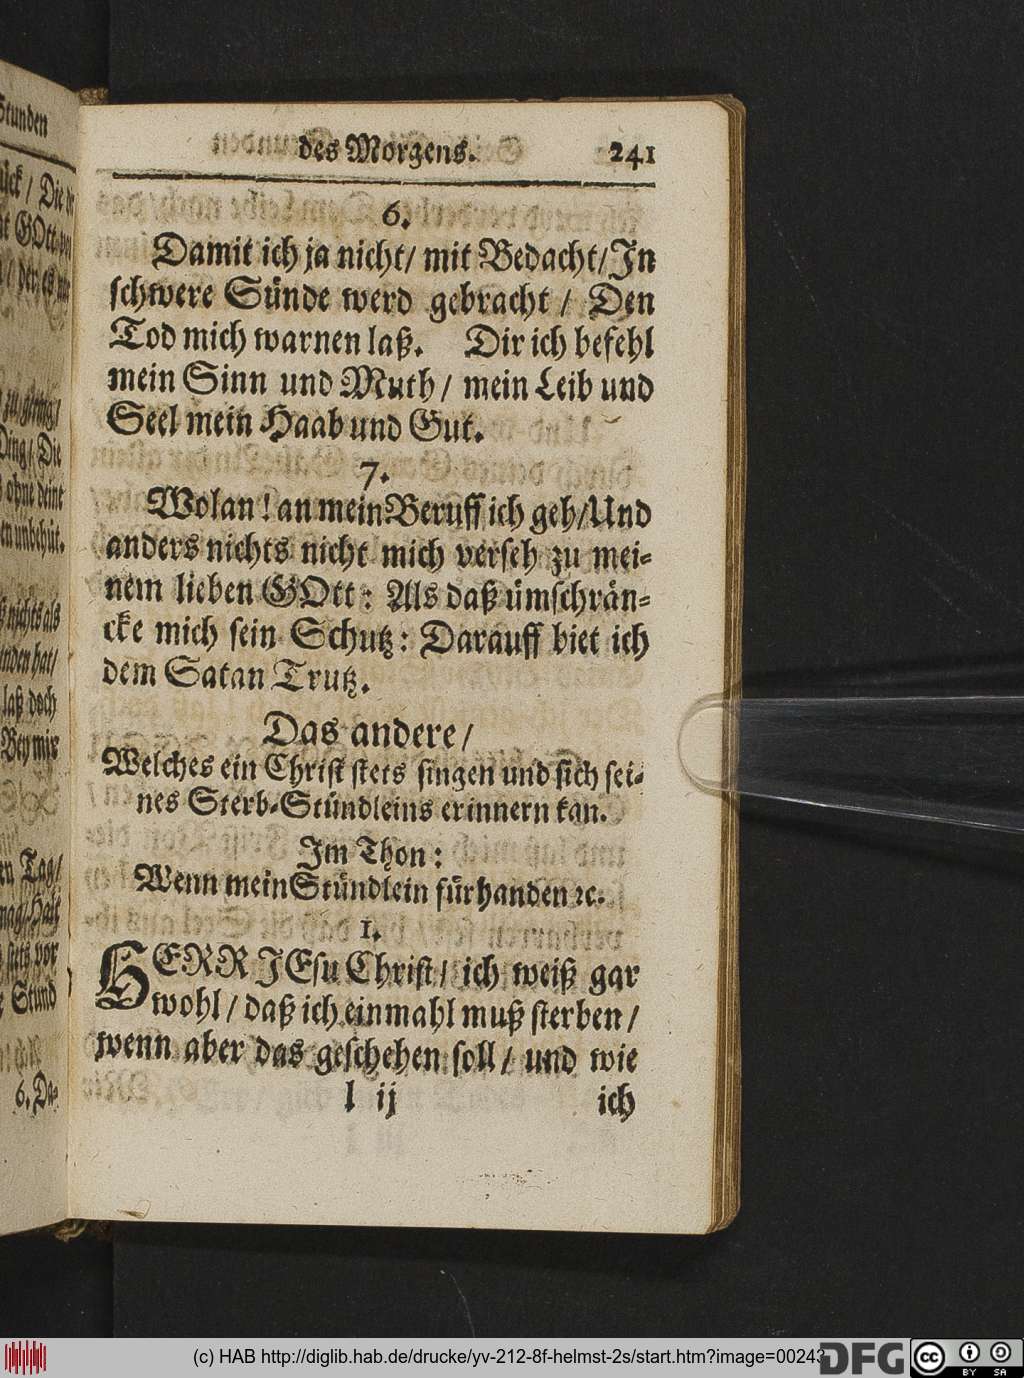 Stunden
ück / Die
GOtt
/ der es
zu gering /
Ding / Die
ohne deine
en unbehüt.
nichts als
nden hat /
laß doch
Bey mir
Tag /
stets vor
Stund
6. Da-
des Morgens. 241
6.
Damit ich ja nicht / mit Bedacht / In
schwere Sünde werd gebracht / Den
Tod mich warnen laß. Dir ich befehl
mein Sinn und Muth / mein Leib und
Seel mein Haab und Gut.
7.
Wolan ! an mein Beruff ich geh / Und
anders nichts nicht mich verseh zu mei-
nem lieben GOtt : Als daß ümschrän-
cke mich sein Schutz : Darauff biet ich
dem Satan Trutz.
Das andere /
Welches ein Christ stets singen und sich sei-
nes Sterb-Stündleins erinnern kan.
Im Thon :
Wenn mein Stündlein fürhanden ꝛc.
1.
HERR JEsu Christ / ich weiß gar
wohl / daß ich einmahl muß sterben /
wenn aber das geschehen soll / und wie
l ij ich
(c) HAB http://diglib.hab.de/drucke/yv-212-8f-helmst-2s/start.htm?image=00243
DFG
cc BY SA